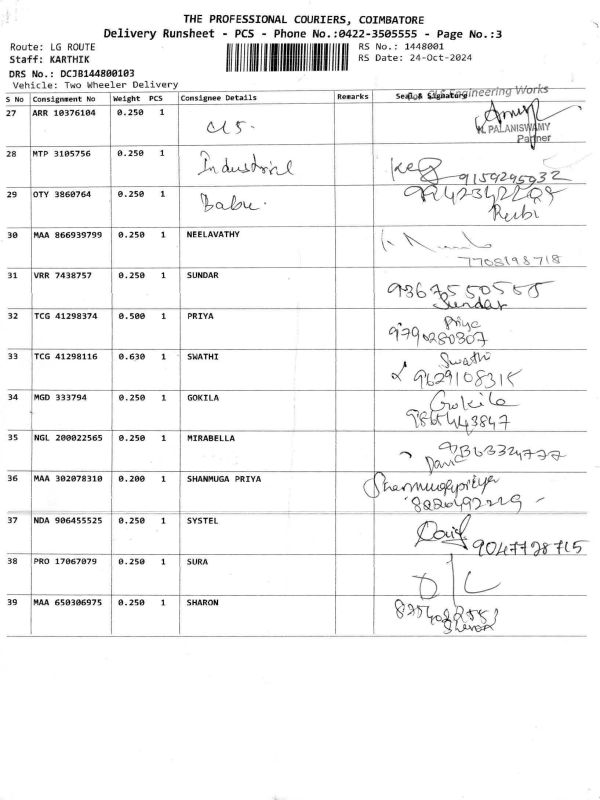 THE PROFESSIONAL COURIERS, COIMBATORE
Delivery Runsheet - PCS - Phone No.:0422-3505555 - Page No.:3
Route: LG ROUTE
Staff: KARTHIK
DRS No.: DCJB144800103
Vehicle: Two Wheeler Delivery
RS No.: 1448001
RS Date: 24-Oct-2024
S No Consignment No Weight PCS Consignee Details Remarks Seal & Signature
Engineering Works
27 ARR 10376104 0.250 1
PALANISWAMY
Partner
28 MTP 3105756 0.250 1 Industrial 9159295932
29 OTY 3860764 0.250 1 Babu.
30 MAA 866939799 0.250 1 NEELAVATHY
7708198718
31 VRR 7438757 0.250 1 SUNDAR 9367550555
Sundar
32 TCG 41298374 0.500 1 PRIYA Priya
9790280807
33 TCG 41298116 0.630 1 SWATHI Swathi
9629108315
34 MGD 333794 0.250 1 GOKILA Gokila
35 NGL 200022565 0.250 1 MIRABELLA
36 MAA 302078310 0.200 1 SHANMUGA PRIYA Shanmugapriya
37 NDA 906455525 0.250 1 SYSTEL
9047728715
38 PRO 17067079 0.250 1 SURA
39 MAA 650306975 0.250 1 SHARON
Sharon